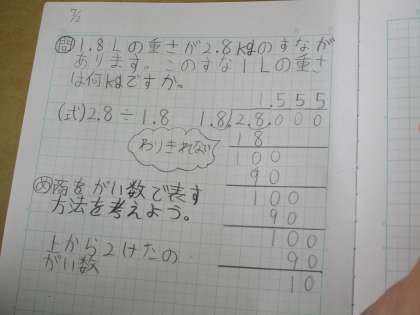 7/2
問 1.8Lの重さが2.8kgのすなが
あります。このすな1Lの重さ
は何kgですか。
1.555
(式)2.8÷1.8 1.8)2.8.000
わりきれない
18
100
90
100
90
100
90
10
め 商をがい数で表す
方法を考えよう。
上から2けたの
がい数